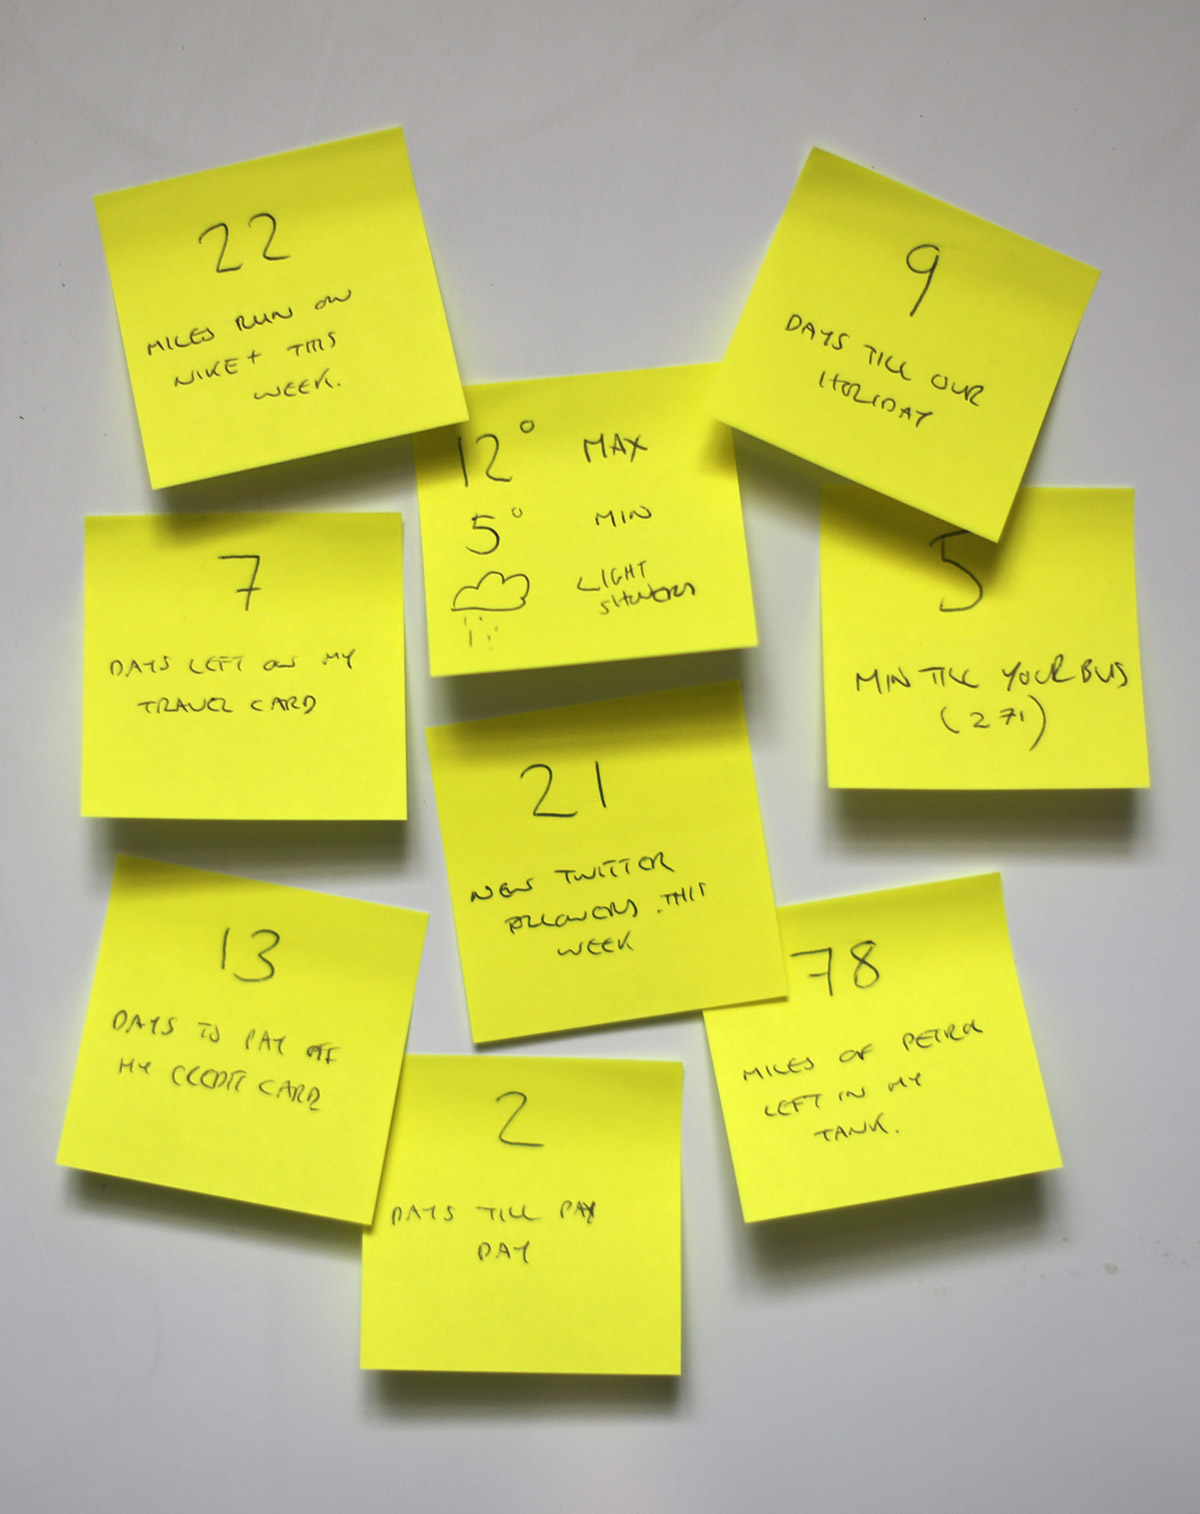 22
MILES RUN ON
NIKE+ THIS
WEEK.
9
DAYS TILL OUR
HOLIDAY
12° MAX
5° MIN
LIGHT
SHOWERS
7
DAYS LEFT ON MY
TRAVEL CARD
5
MIN TILL YOUR BUS
(271)
21
NEW TWITTER
FOLLOWERS THIS
WEEK
13
DAYS TO PAY OFF
MY CREDIT CARD
78
MILES OF PETROL
LEFT IN MY
TANK.
2
DAYS TILL PAY
DAY